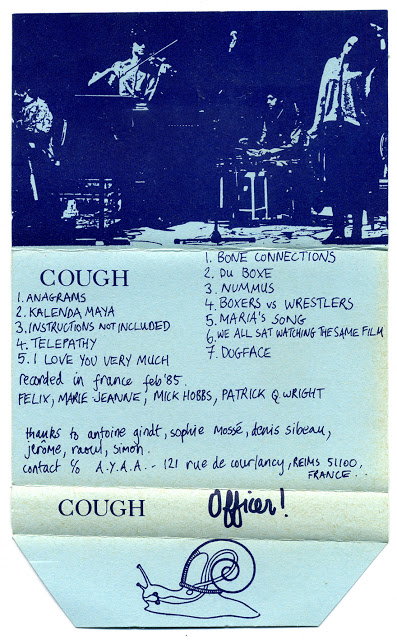 COUGH
1. ANAGRAMS
2. KALENDA MAYA
3. INSTRUCTIONS NOT INCLUDED
4. TELEPATHY
5. I LOVE YOU VERY MUCH
1. BONE CONNECTIONS
2. DU BOXE
3. NUMMUS
4. BOXERS vs WRESTLERS
5. MARIA'S SONG
6. WE ALL SAT WATCHING THE SAME FILM
7. DOGFACE
recorded in france feb '85.
FELIX, MARIE JEANNE, MICK HOBBS, PATRICK Q WRIGHT
thanks to antoine gindt, sophie mossé, denis sibeau,
jérôme, raoul, simon.
contact c/o A.Y.A.A. - 121 rue de courlancy, REIMS 51100,
FRANCE..
COUGH Officer!